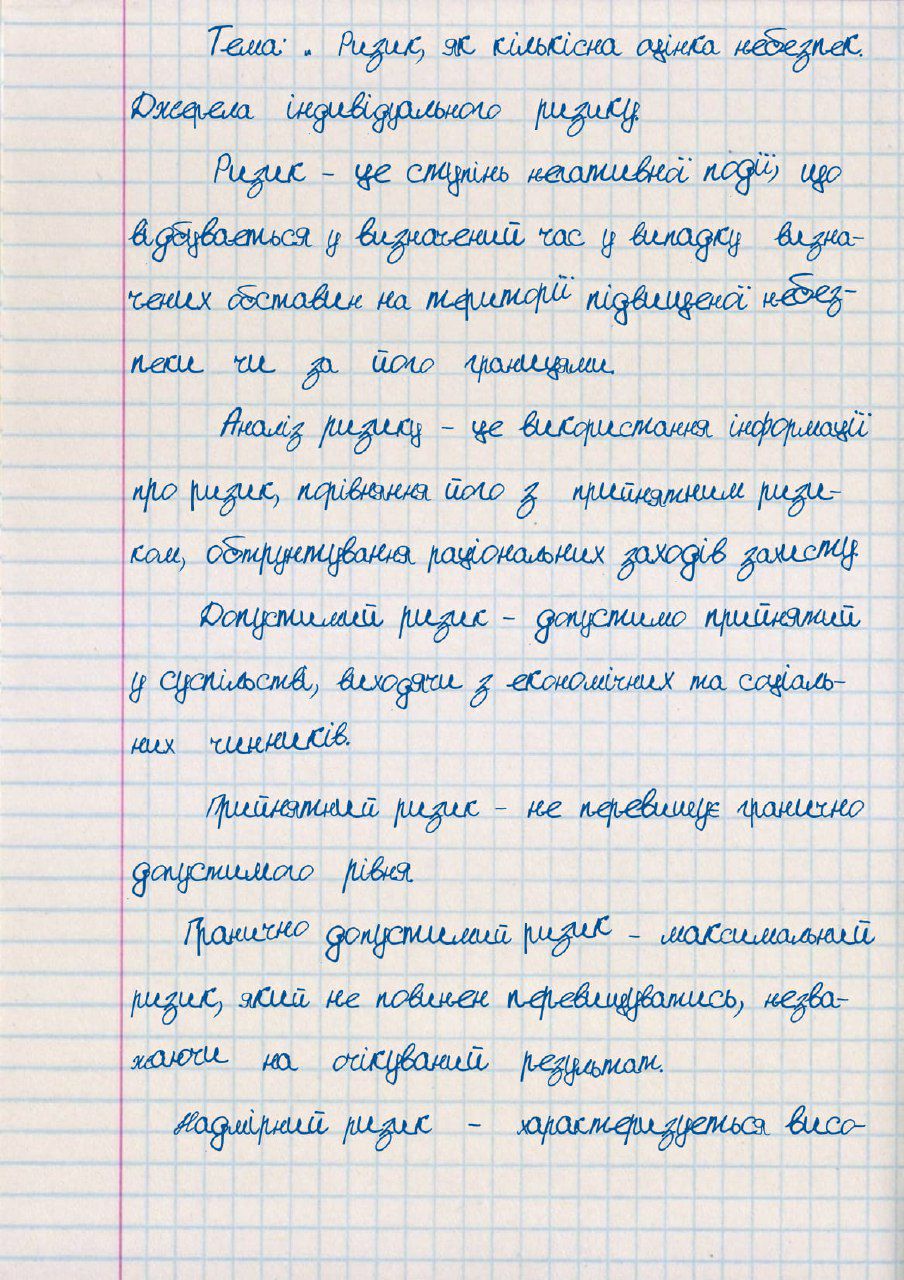 Тема: . Ризик, як кількісна оцінка небезпек.
Джерела індивідуального ризику.
Ризик - це ступінь негативної події, що
відбувається у визначений час у випадку визна-
чених обставин на території підвищеної небез-
пеки чи за його границями.
Аналіз ризику - це використання інформації
про ризик, порівняння його з прийнятним ризи-
ком, обгрунтування раціональних заходів захисту.
Допустимий ризик - допустимо прийнятий
у суспільстві, виходячи з економічних та соціаль-
них чинників.
Прийнятний ризик - не перевищує гранично
допустимого рівня.
Гранично допустимий ризик - максимальний
ризик, який не повинен перевищуватись, незва-
жаючи на очікуваний результат.
Надмірний ризик - характеризується висо-